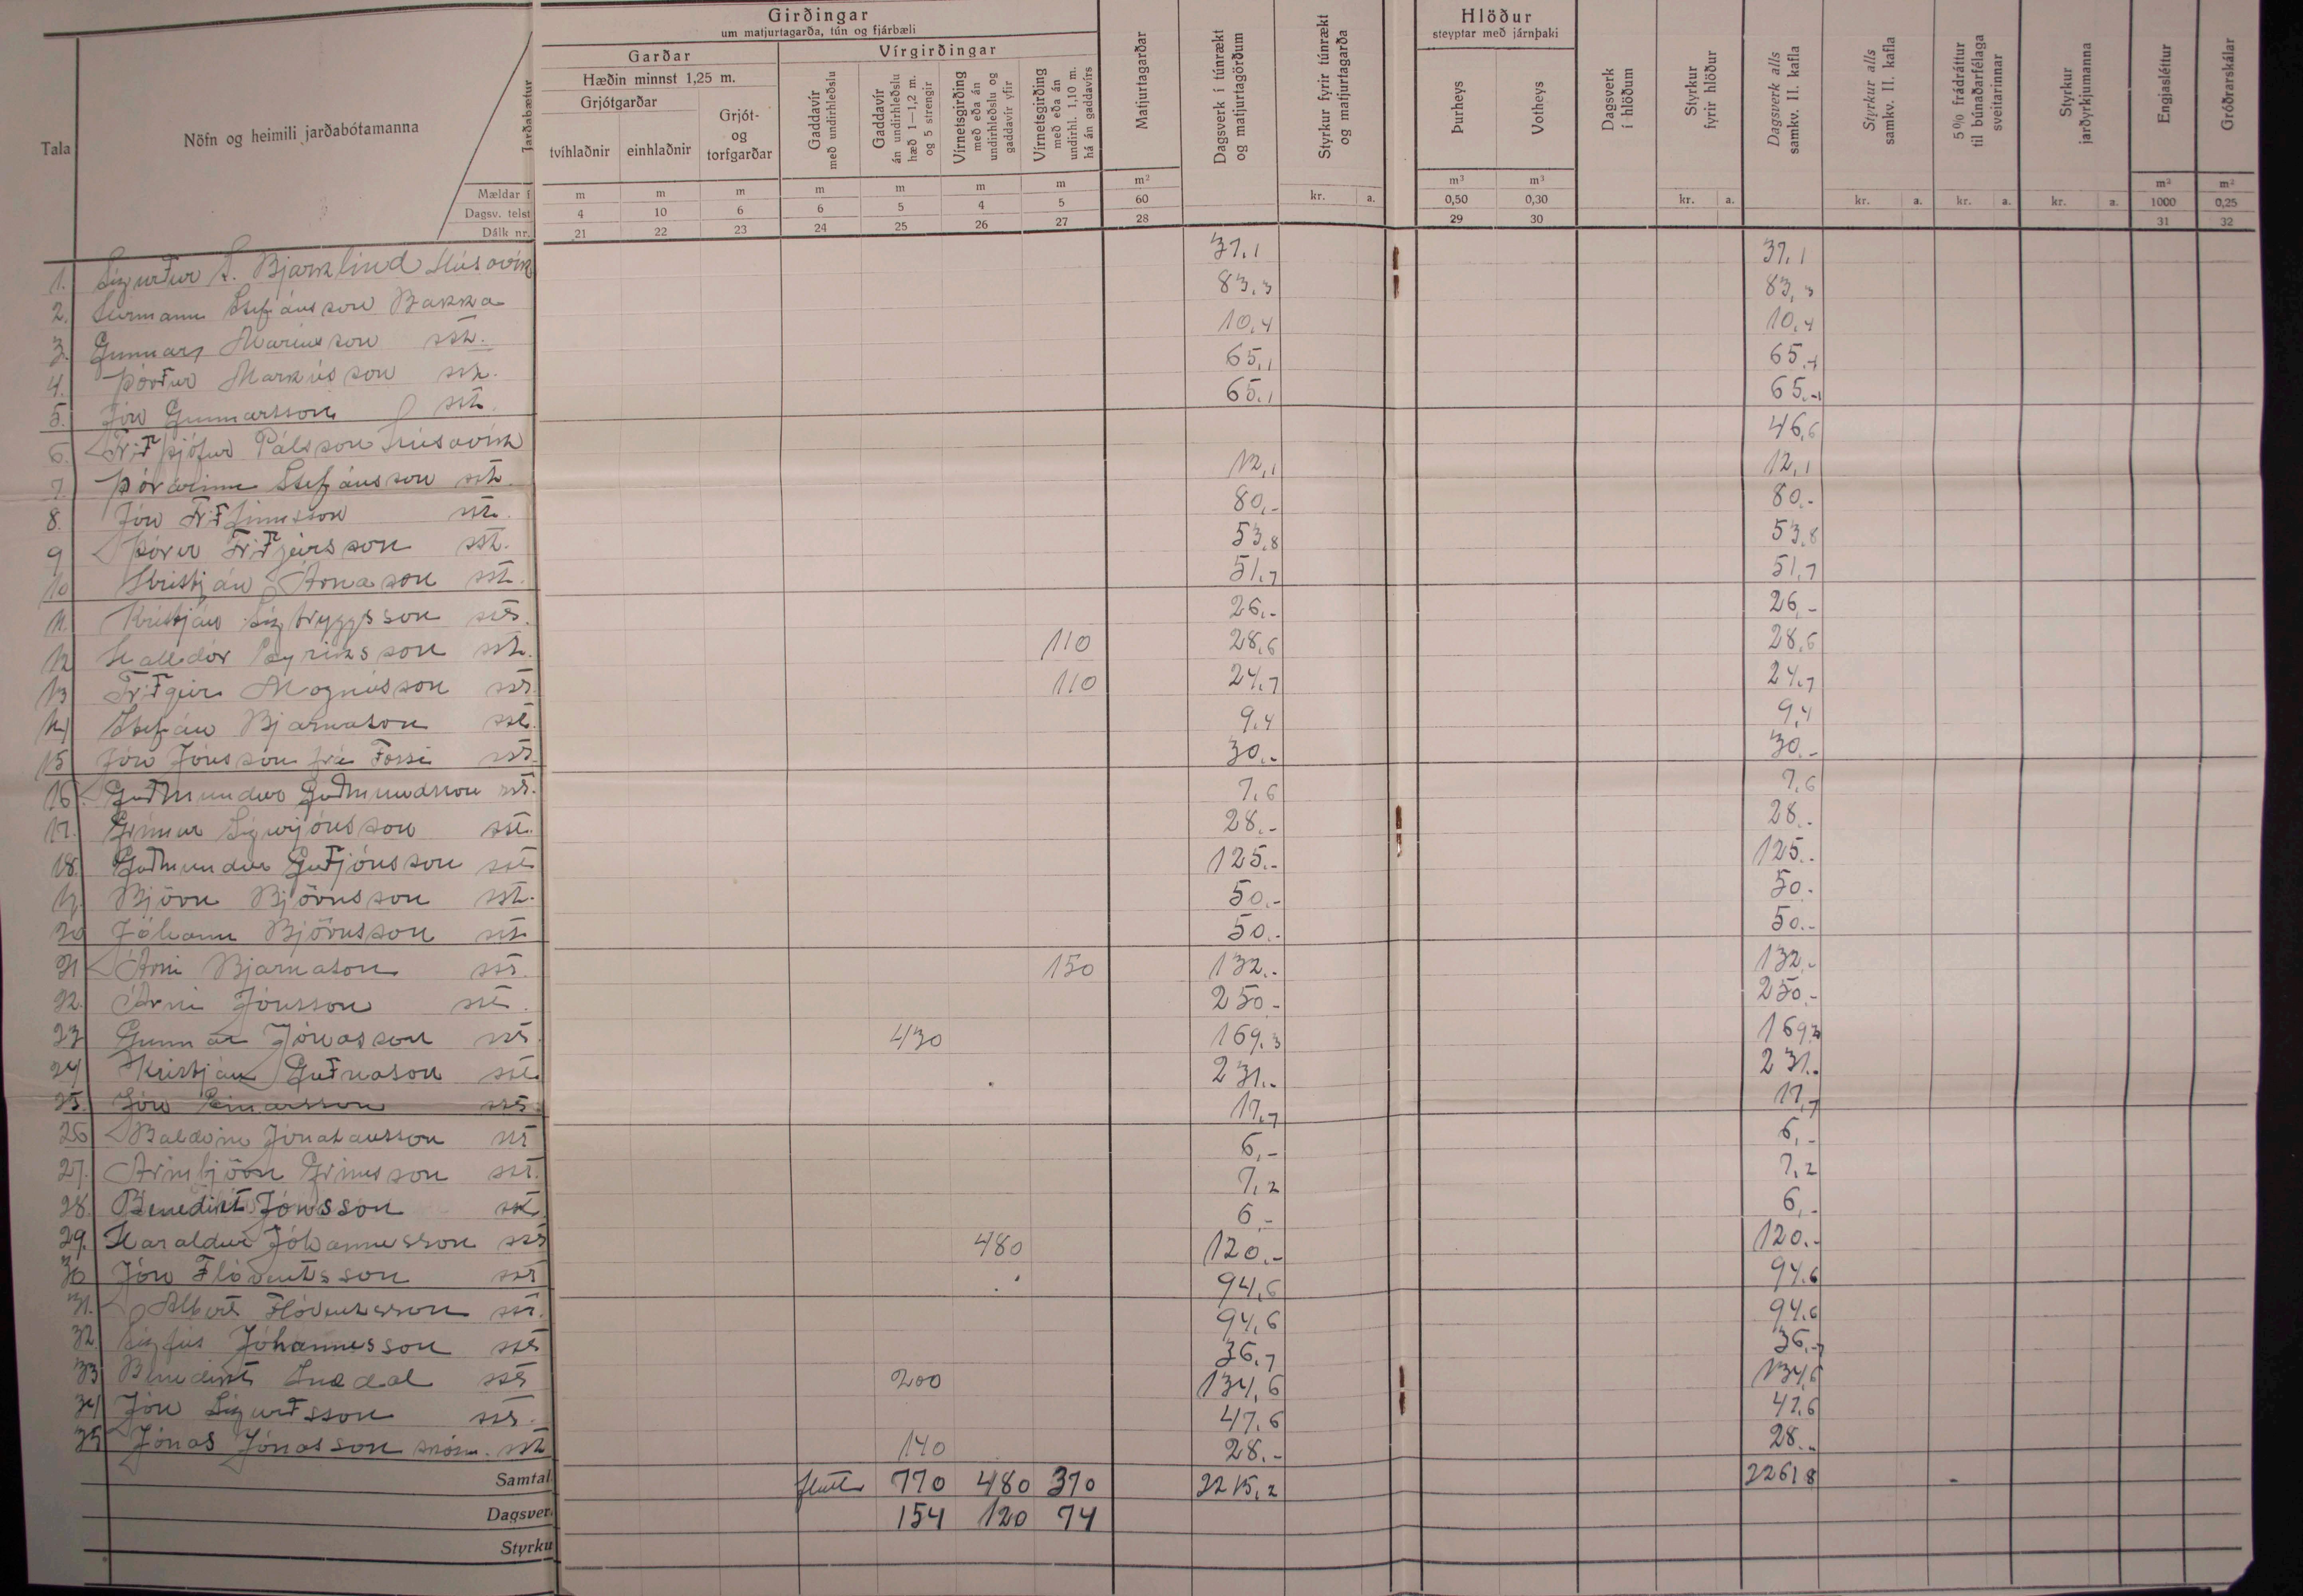 Girðingar
um matjurtagarða, tún og fjárbæli
Garðar
Vírgirðingar
Hæðin minnst 1,25 m.
Grjótgarðar
Grjót- og torfgarðar
tvíhlaðnir einhlaðnir
Gaddavír með undirhleðslu
Gaddavír án undirhleðslu hæð 1—1,2 m. og 5 strengir
Vírnetsgirðing með eða án undirhleðslu og gaddavír yfir
Vírnetsgirðing með eða án undirhl. 1,10 m. há án gaddavírs
Matjurtagarðar
Dagsverk í túnrækt og matjurtagörðum
Styrkur fyrir túnrækt og matjurtagarða
Hlöður
steyptar með járnþaki
Þurheys
Votheys
Dagsverk í hlöðum
Styrkur fyrir hlöður
Dagsverk alls samkv. II. kafla
Styrkur alls samkv. II. kafla
5% frádráttur til búnaðarfélaga sveitarinnar
Styrkur jarðyrkjumanna
Engjasléttur
Gróðrarskálar
Tala
Nöfn og heimili jarðabótamanna
Jarðabætur
Mældar í m m m m m m m m² kr. a. m³ m³ kr. a. kr. a. kr. a. kr. a. m² m²
Dagsv. telst 4 10 6 6 5 4 5 60 0,50 0,30 1000 0,25
Dálk nr. 21 22 23 24 25 26 27 28 29 30 31 32
1. Sigurður S. Bjarklind Húsavík 37,1 37,1
2. Hermann Stefánsson Bakka 83,3 83,3
3. Gunnar Maríusson sst. 10,4 10,4
4. Þórður Markússon sst. 65,1 65,1
5. Jón Gunnarsson sst. 65,1 65,1
6. Friðþjófur Pálsson Húsavík 46,6
7. Þórarinn Stefánsson sst. 12,1 12,1
8. Jón Friðfinnsson sst. 80,- 80.-
9 Þórir Friðgeirsson sst. 53,8 53,8
10 Kristján Árnason sst. 51,7 51,7
11. Kristján Sigtryggsson sst. 26.- 26,-
12 Halldór sst. 110 28,6 28,6
13 Friðgeir Magnússon sst. 110 24,7 24,7
14 Stefán Bjarnason sst. 9,4 9,4
15 Jón Jónsson frá Fossi sst. 30.- 30.-
16. Guðmundur Guðmundsson sst. 7,6 7,6
17. Grímur Sigurjónsson sst. 28.- 28.-
18. Guðmundur Guðjónsson sst. 125.- 125.-
19. Björn Björnsson sst. 50.- 50.-
20 Jóhann Björnsson sst. 50.- 50.-
21 Árni Bjarnason sst. 150 132.- 132.-
22. Árni Jónsson sst. 250.- 250.-
23 Gunnar Jónasson sst. 430 169,3 169,3
24 Kristján Guðnason sst. 231.- 231.-
25. Jón Einarsson sst. 17,7 17,7
26 Baldvin Jónatansson sst. 6,- 6,-
27. Arinbjörn Grímsson sst. 7,2 7,2
28. Benedikt Jónsson sst. 6,- 6,-
29. Haraldur Jóhannesson sst. 480 120.- 120.-
30 Jón Flóventsson sst. 94,6 94,6
31. Albert Flóventsson sst. 94,6 94,6
32. Sigfús Jóhannesson sst. 36,7 36,7
33 Benedikt Snædal sst. 200 134,6 134,6
34 Jón Sigurðsson sst. 47,6 47,6
35 Jónas Jónasson sst. 140 28.- 28.-
Samtal flutt 770 480 370 2215,2 2261,8
Dagsver 154 120 74
Styrku